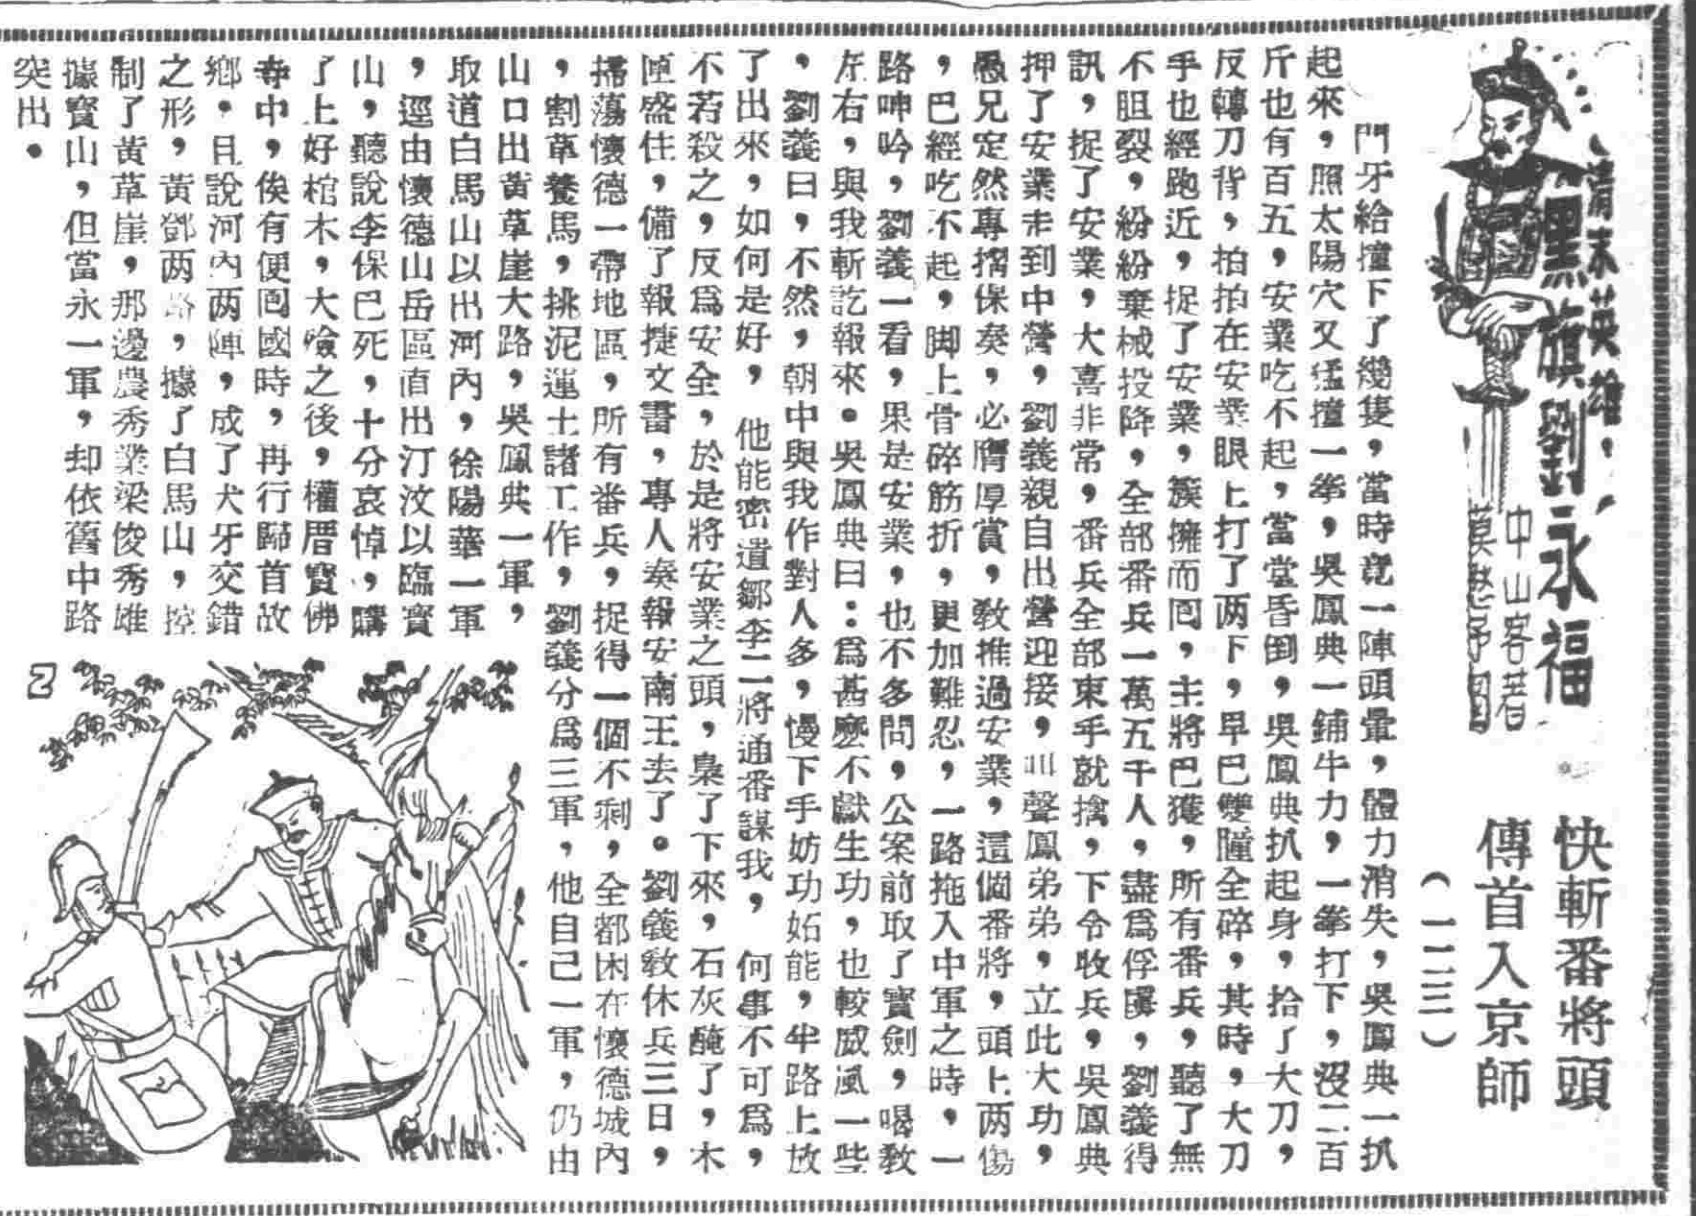 清末英雄
黑旗劉永福
中山客著
快斬番將頭
傳首入京師
(一一三三)
門牙給撞下了幾隻,當時竟一陣頭暈,體力消失,吳鳳典一扒
起來,照太陽穴又猛撞一拳,吳鳳典一鋪牛力,一拳打下,沒二百
斤也有百五,安業吃不起,當堂昏倒,吳鳳典扒起身,拾了大刀,
反轉刀背,拍拍在安業眼上打了两下,早巳雙瞳全碎,其時,大刀
手也經跑近,捉了安業,簇擁而囘,主將巴獲,所有番兵,聽了無
不胆裂,紛紛棄械投降,全部番兵一萬五千人,盡爲俘虜,劉義得
訊,捉了安業,大喜非常,番兵全部束手就擒,下令收兵,吳鳳典
押了安業走到中營,劉義親自出營迎接,叫聲鳳弟弟,立此大功,
愚兄定然專摺保奏,必膺厚賞,敎推過安業,這個番將,頭上两傷
,巴經吃不起,脚上骨碎筋折,更加難忍,一路拖入中軍之時,一
路呻吟,劉義一看,果是安業,也不多問,公案前取了寶劍,喝敎
左右,與我斬訖報來。吳鳳典曰:爲甚麽不獻生功,也較威風一些
,劉義曰,不然,朝中與我作對人多,慢下手妨功妬能,半路上放
了出來,如何是好,他能密遣鄒李二將通番謀我,何事不可爲,
不若殺之,反爲安全,於是將安業之頭,梟了下來,石灰醃了,木
匣盛住,備了報捷文書,專人奏報安南王去了。劉義敎休兵三日,
掃蕩懷德一帶地區,所有番兵,捉得一個不剩,全都困在懷德城內
,割草養馬,挑泥運土諸工作,劉義分爲三軍,他自己一軍,仍由
山口出黃草崖大路,吳鳳典一軍,
取道白馬山以出河內,徐陽華一軍
,逕由懷德山岳區直出汀汶以臨寶
山,聽說李保巴死,十分哀悼,購
了上好棺木,大殮之後,權厝寶佛
寺中,俟有便囘國時,再行歸首故
鄕。且說河內两陣,成了犬牙交錯
之形,黃鄧两路,據了白馬山,控
制了黃草崖,那邊農秀業梁俊秀雄
據寶山,但當永一軍,却依舊中路
突出。
2